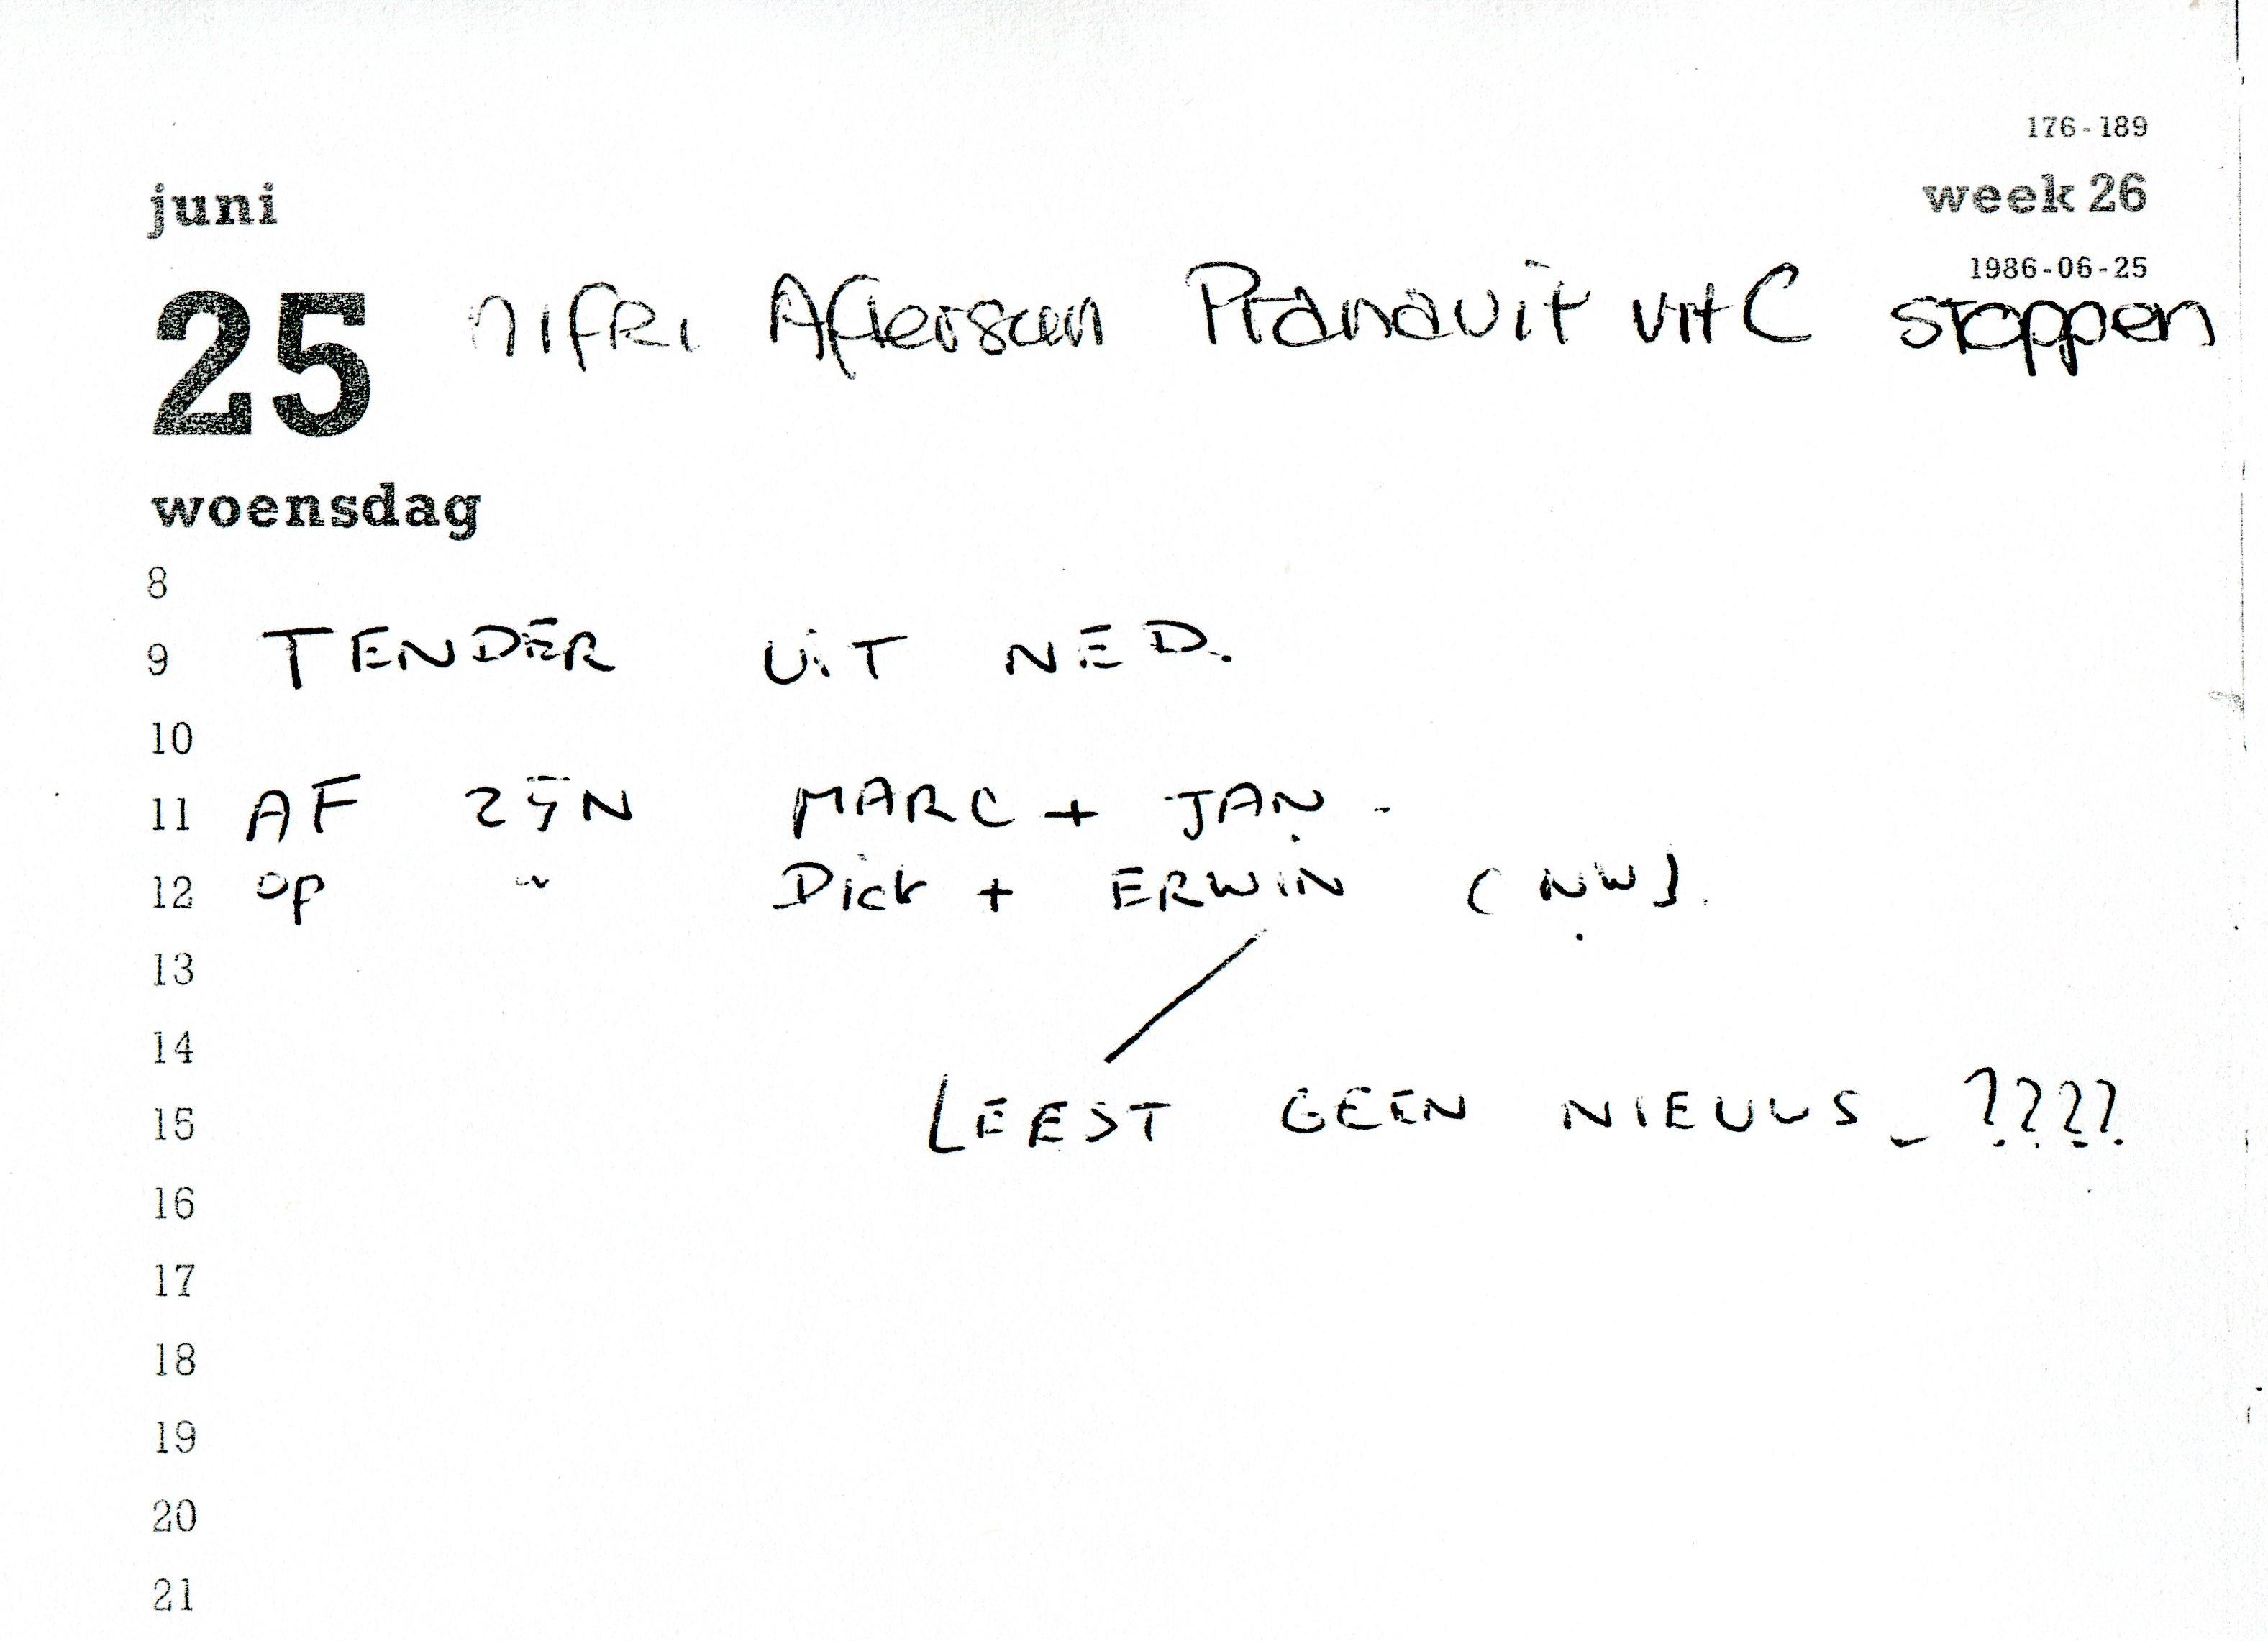 176-189
juni
week 26
1986-06-25
25 nifRi Aftersun Pranavit vit C stoppen
woensdag
8
9 TENDER UiT NED.
10
11 AF ZijN MARC + JAN -
12 op " Dick + ERWiN (NW).
13
14
15 LEEST GEEN NIEUWS - ????
16
17
18
19
20
21